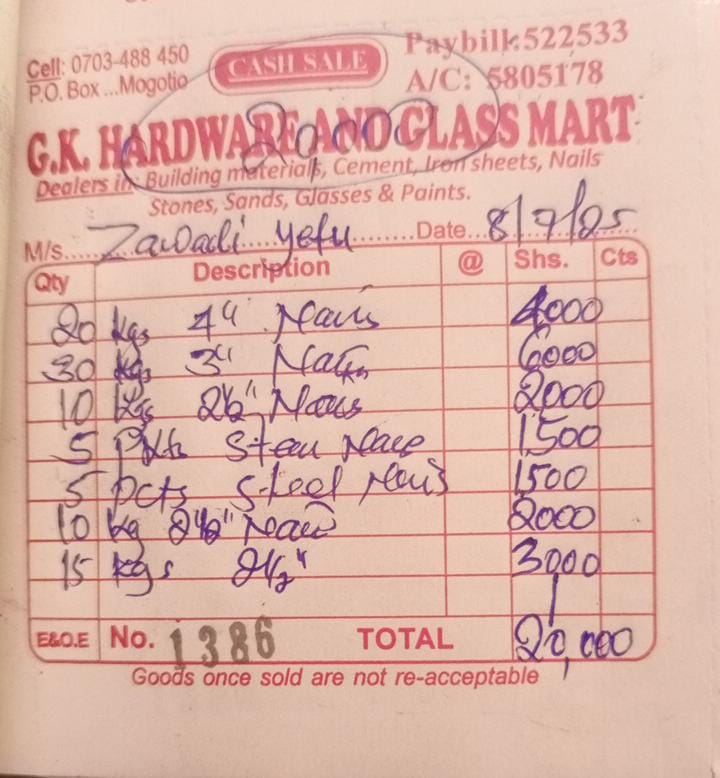 Cell: 0703-488 450
P.O. Box ...Mogotio
CASH SALE
Paybill:522533
A/C: 5805178
20000
G.K. HARDWARE AND GLASS MART
Dealers in: Building materials, Cement, Iron sheets, Nails
Stones, Sands, Glasses & Paints.
M/s. Zawadi yetu Date 8/7/25
Qty Description @ Shs. Cts
20 kgs 4" Nails 4000
30 kgs 3" Nails 6000
10 kgs 2½" Nails 2000
5 Pkts Steel Nails 1500
5 pcts Steel Nails 1500
10 kg 2½" Nails 2000
15 kgs 2½" 3000
E&O.E No. 1386 TOTAL 20,000
Goods once sold are not re-acceptable